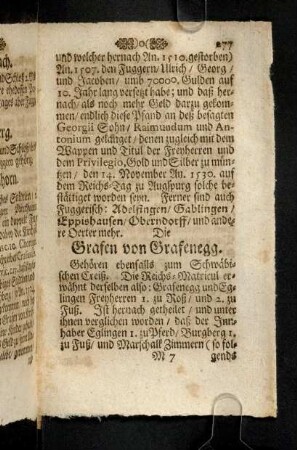 0 277
und welcher hernach An. 1510. gestorben)
An. 1507. den Fuggern/ Ulrich/ Georg/
und Jacoben/ umb 70000. Gulden auf
10. Jahr lang versetzt habe; und daß her-
nach/ als noch mehr Geld darzu gekom-
men/ endlich diese Pfand an deß besagten
Georgii Sohn/ Raimundum und An-
tonium gelanget/ denen zugleich mit dem
Wappen und Titul der Freyherren und
dem Privilegio, Gold und Silber zu mün-
zen/ den 14. November An. 1530. auf
dem Reichs-Tag zu Augspurg solche be-
stättiget worden seyn. Ferner sind auch
Fuggerisch: Adelfingen/ Gablingen/
Eppishausen/ Oberndorff/ und ande-
re Oerter mehr. Die
Grafen von Grafenegg.
Gehören ebenfalls zum Schwäbi-
schen Creiß. Die Reichs-Matricul er-
wähnt derselben also: Grafenegg und Eg-
lingen Freyherren 1. zu Roß/ und 2. zu
Fuß. Ist hernach getheilet/ und unter
ihnen verglichen worden/ daß der Inn-
haber Eglingen 1. zu Pferd/ Burgberg 1.
zu Fuß/ und Marschalk Zimmern (so fol-
M 7 gends